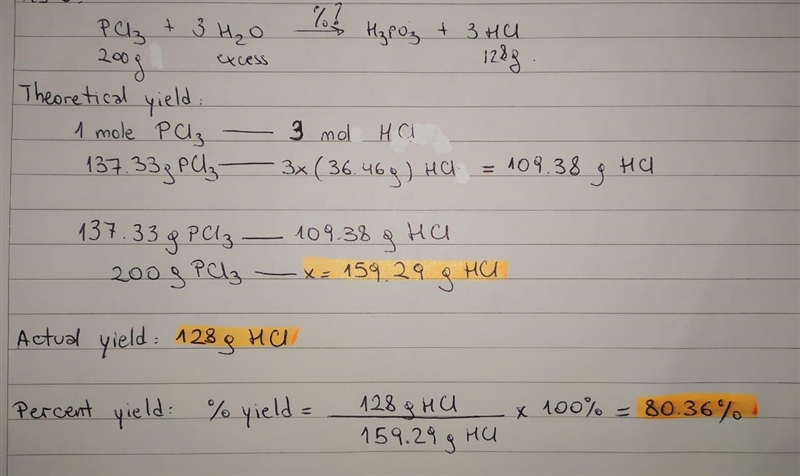 %?
PCl₃ + 3 H₂O → H₃PO₃ + 3 HCl
200g excess 128g.
Theoretical yield:
1 mole PCl₃ — 3 mol HCl
137.33g PCl₃ — 3x(36.46g) HCl = 109.38 g HCl
137.33 g PCl₃ — 109.38 g HCl
200 g PCl₃ — x= 159.29 g HCl
Actual yield: 128 g HCl
Percent yield: % yield = 128 g HCl / 159.29 g HCl x 100% = 80.36%